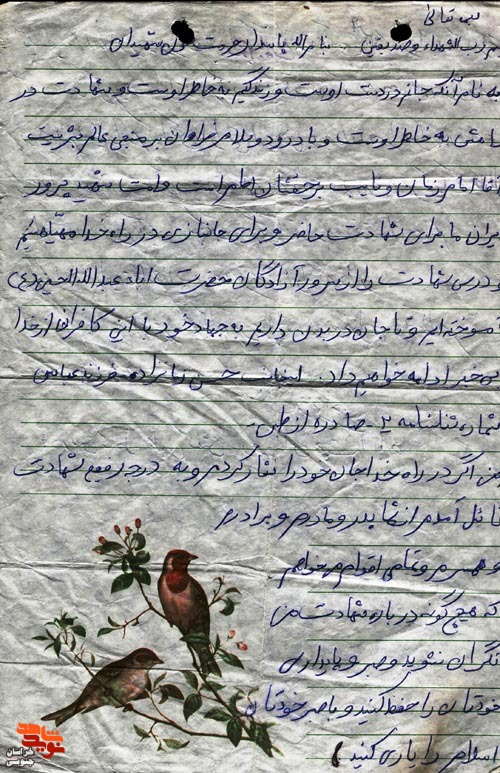 بسم تعالی
بسم رب الشهداء و صدیقین . بنام الله پاسدار حرمت خون شهیدان
به نام آنکه جانم در دست اوست و زندگیم به خاطر اوست و شهادت در
راهش به خاطر اوست و با درود و سلام فراوان بر منجی عالم بشریت
آقا امام زمان و نایب برحقشان امام امت و امت شهید پرور
ایران ما برای شهادت حاضر و برای جانبازی در راه خدا مهیا هستیم
و درس شهادت را از سرور آزادگان حضرت اباعبدالله الحسین (ع)
آموخته ایم و تا جان در بدن داریم به جهاد خود با این کافران از خدا
بی خبر ادامه خواهیم داد. اینجانب حسن رضازاده فرزند عباس
شماره شناسنامه ۲ صادره از طبس.
من اگر در راه خدا جان خود را نثار کردم و به درجه رفیع شهادت
نائل آمدم از شما پدر و مادرم و برادرم
و همسرم و تمامی اقوام میخواهم
که هیچ گونه درباره شهادت من
نگران نشوید و صبر و پایداری
خودتان را حفظ کنید و با صبر خودتان
اسلام را یاری کنید
نوید شاهد
خراسان جنوبی